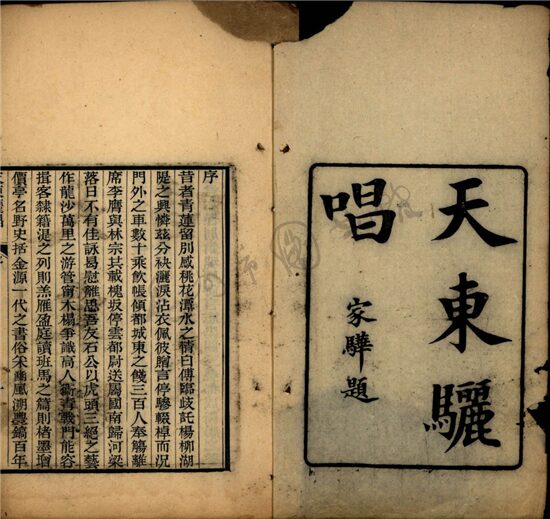 天東驪
唱
家驊題
序
昔者青蓮留別感桃花潭水之情白傅臨歧託楊柳湖
隄之興憐茲分袂灑淚沾衣佩彼贈言停驂輟棹而況
門外之車數十乘飲帳傾都城東之餞三百人奉觴離
席李膺與林宗共載槐坂停雲都尉送屬國南歸河梁
落日不有佳詠曷慰離思吾友石公以虎頭三絕之藝
作龍沙萬里之游管甯木榻爭識高人衞青戟門能容
揖客隸籍湜之列則羔雁盈庭讀班馬之篇則楮墨增
價亭名野史括金源一代之書俗采豳風溯豐鎬百年